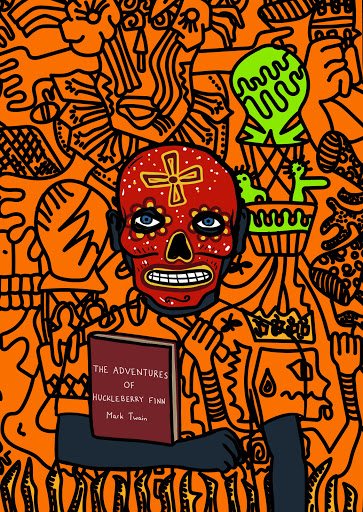 THE ADVENTURES
OF
HUCKLEBERRY FINN
Mark Twain